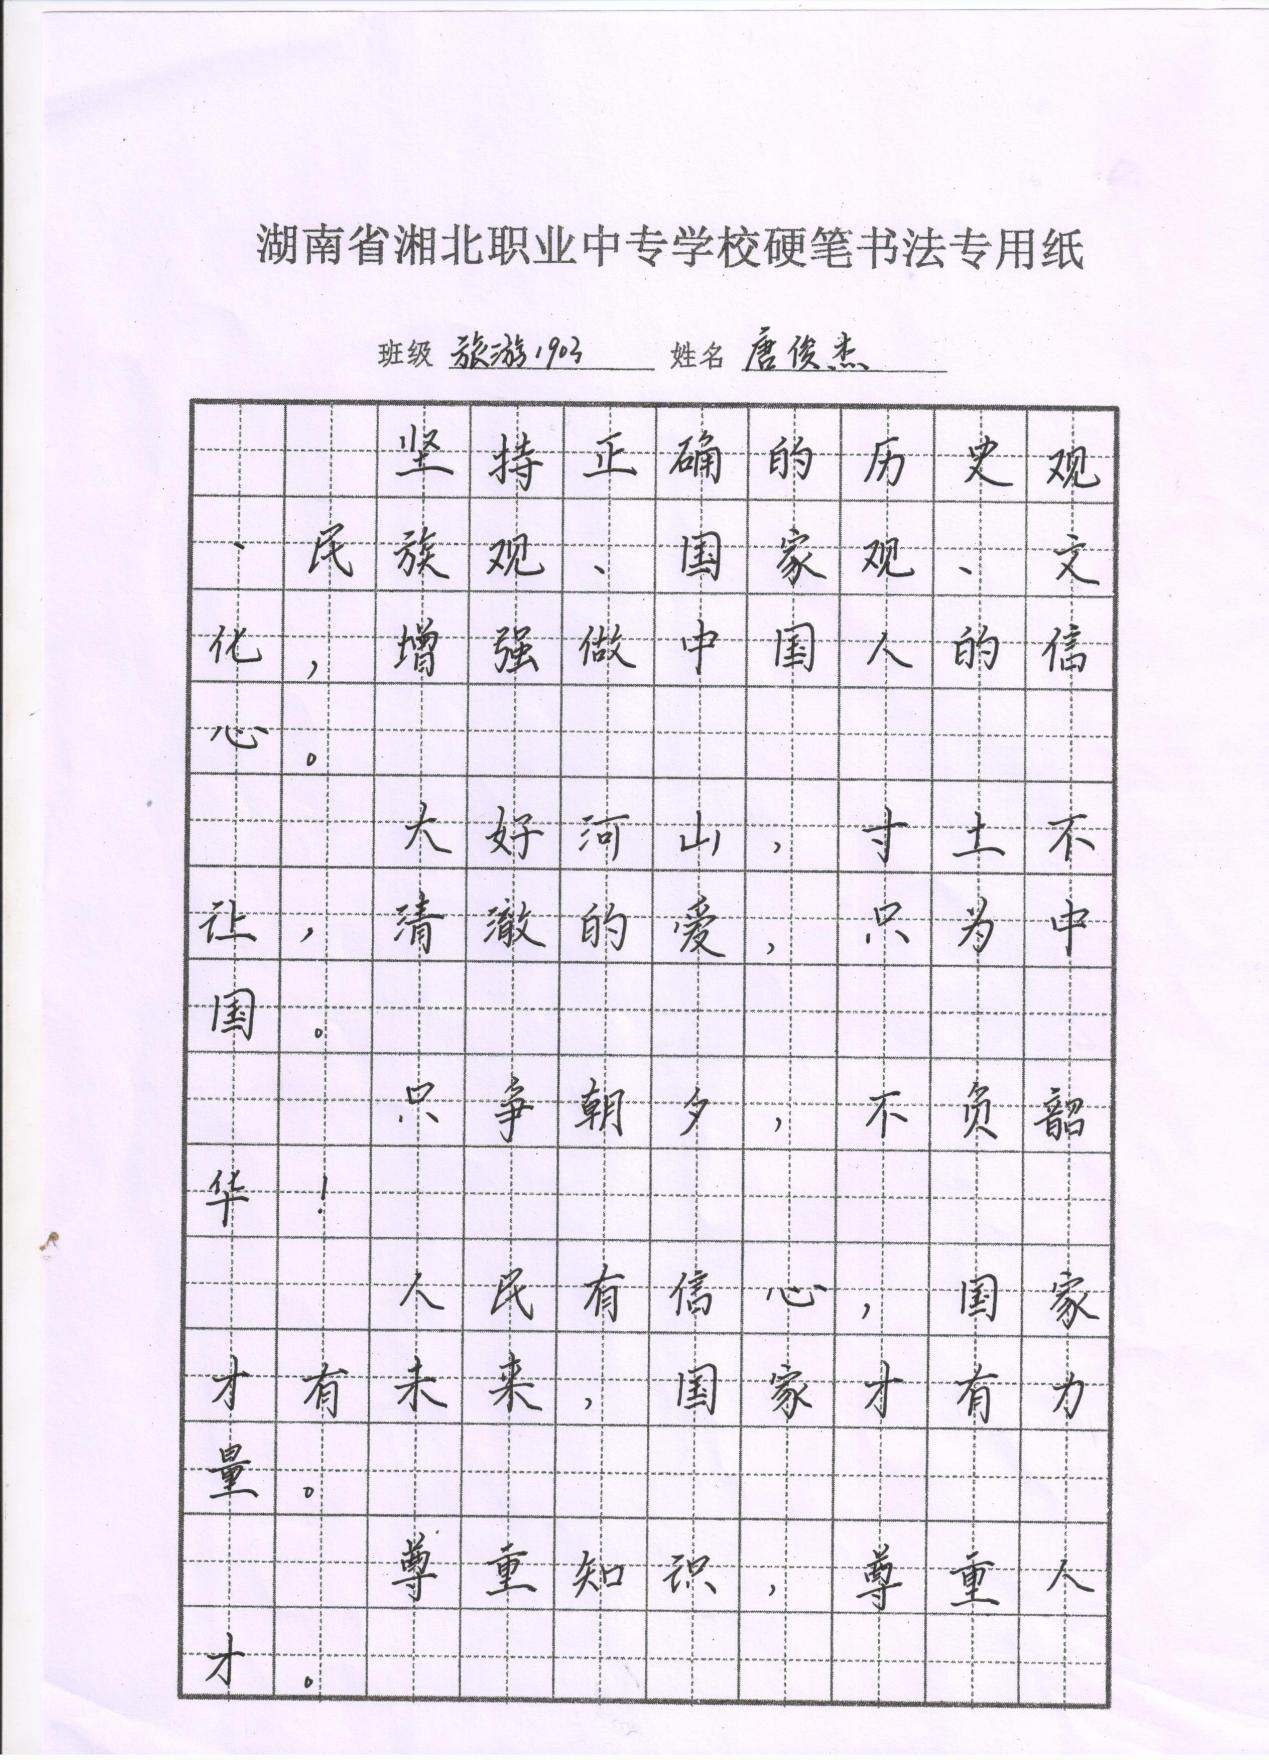 湖南省湘北职业中专学校硬笔书法专用纸
班级 旅游1903 姓名 唐俊杰
坚持正确的历史观
、民族观、国家观、文
化，增强做中国人的信
心。
大好河山，寸土不
让，清澈的爱，只为中
国。
只争朝夕，不负韶
华！
人民有信心，国家
才有未来，国家才有力
量。
尊重知识，尊重人
才。